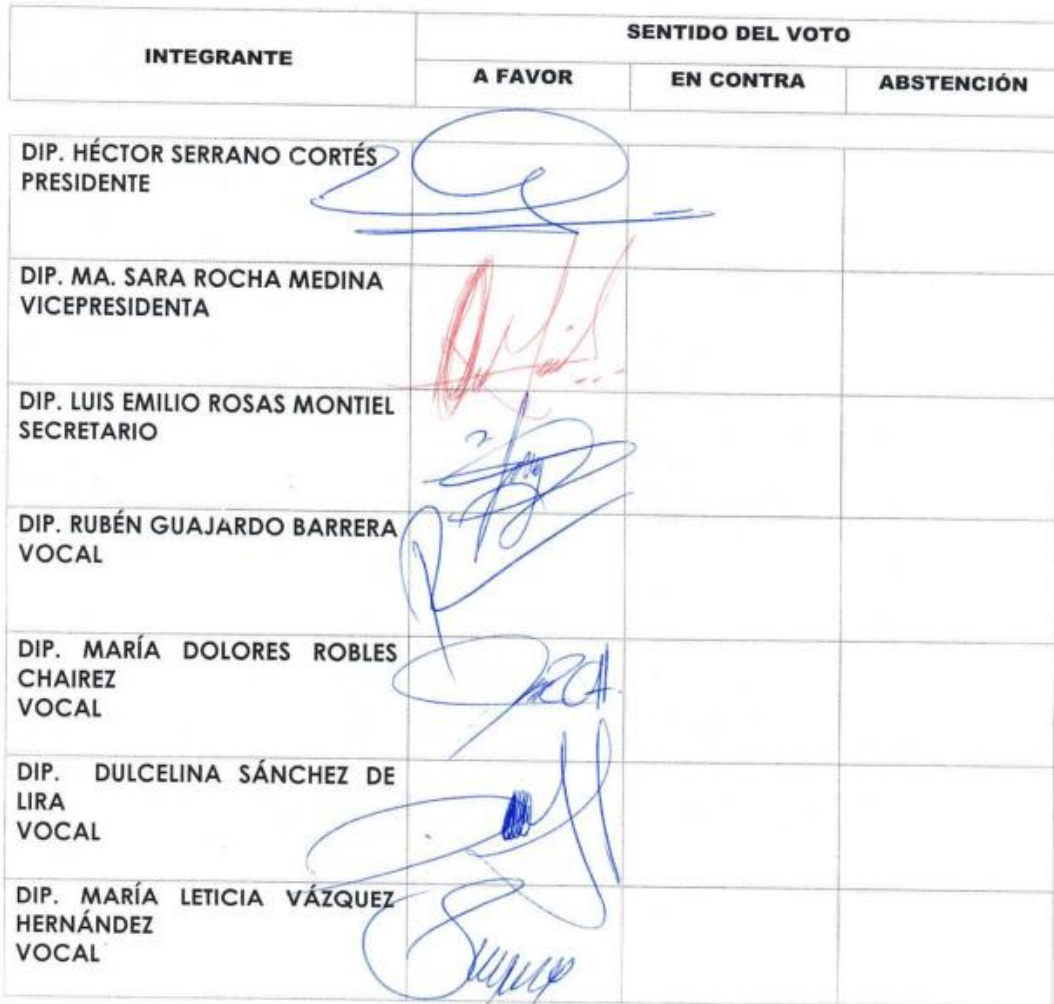 INTEGRANTE
SENTIDO DEL VOTO
A FAVOR
EN CONTRA
ABSTENCIÓN
DIP. HÉCTOR SERRANO CORTÉS
PRESIDENTE
DIP. MA. SARA ROCHA MEDINA
VICEPRESIDENTA
DIP. LUIS EMILIO ROSAS MONTIEL
SECRETARIO
DIP. RUBÉN GUAJARDO BARRERA
VOCAL
DIP. MARÍA DOLORES ROBLES
CHAIREZ
VOCAL
DIP. DULCELINA SÁNCHEZ DE
LIRA
VOCAL
DIP. MARÍA LETICIA VÁZQUEZ
HERNÁNDEZ
VOCAL